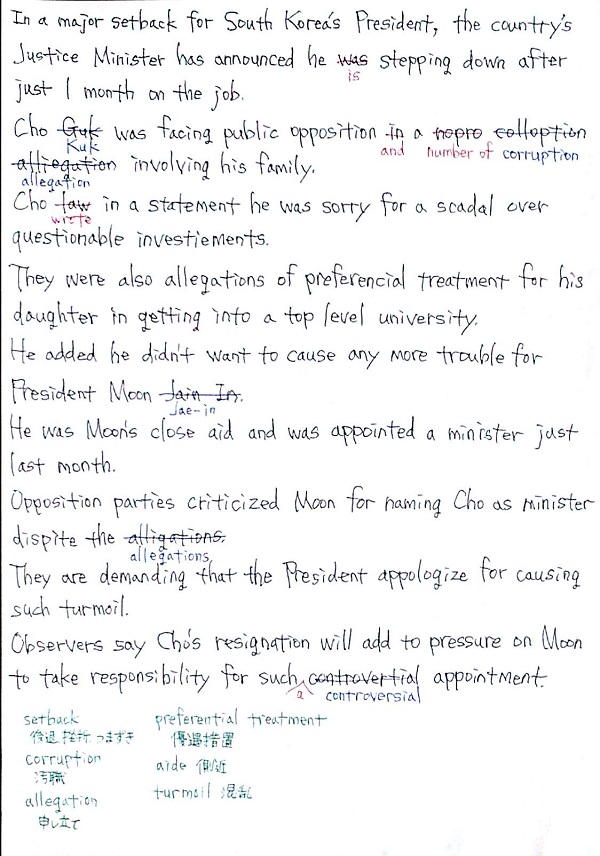 In a major setback for South Korea's President, the country's
Justice Minister has announced he was stepping down after
is
just 1 month on the job.
Cho Guk was facing public opposition in a nopro colloption
Kuk and number of corruption
alliegation involving his family.
allegation
Cho law in a statement he was sorry for a scadal over
wrote
questionable investiements.
They were also allegations of preferencial treatment for his
daughter in getting into a top level university.
He added he didn't want to cause any more trouble for
President Moon Jain In.
Jae-in
He was Moon's close aid and was appointed a minister just
last month.
Opposition parties criticized Moon for naming Cho as minister
dispite the alligations.
allegations
They are demanding that the President appologize for causing
such turmoil.
Observers say Cho's resignation will add to pressure on Moon
to take responsibility for such controvertial appointment.
a controversial
setback preferential treatment
後退 挫折 つまずき 優遇措置
corruption aide 側近
汚職
allegation turmoil 混乱
申し立て